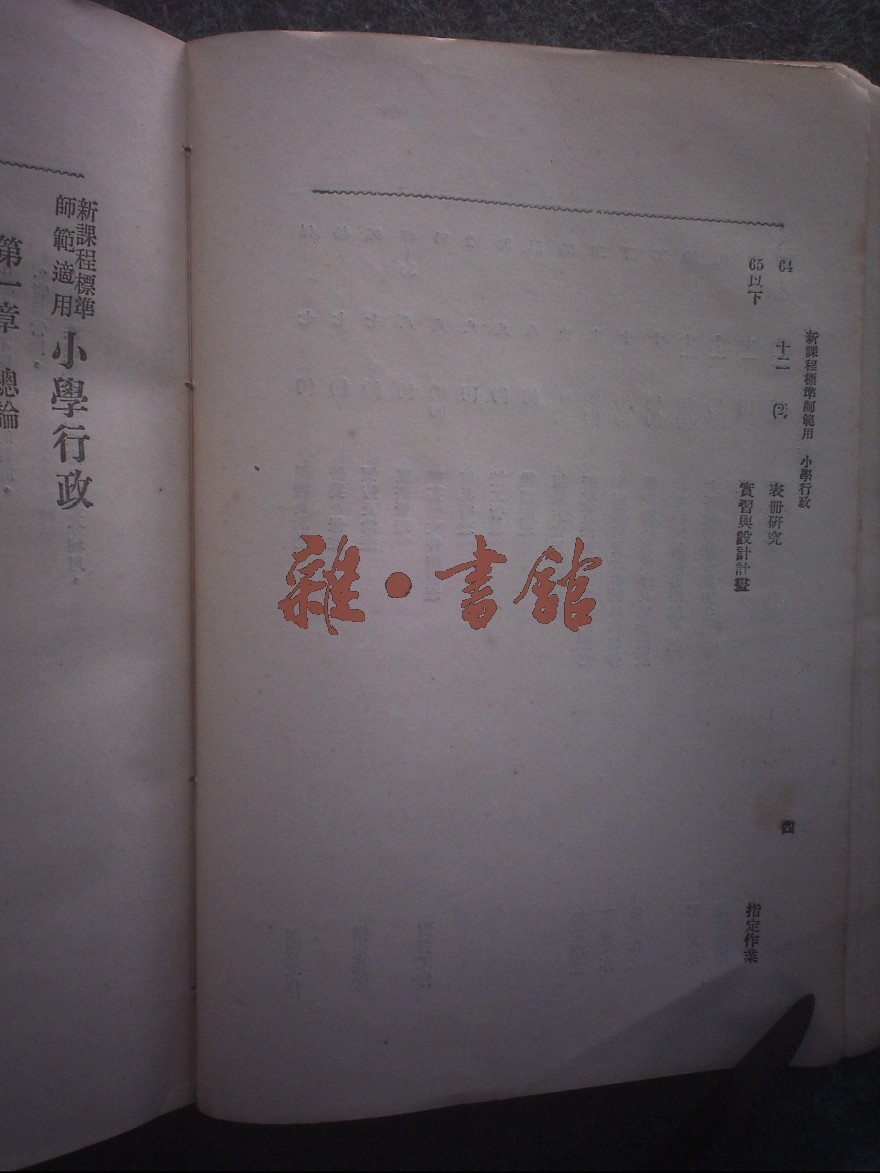 新課程標準師範用 小學行政
四
64 十二 (2) 表册研究
65以下 實習與設計計畫 指定作業
雜·書館
新課程標準
師範適用
小學行政
第一章 總論